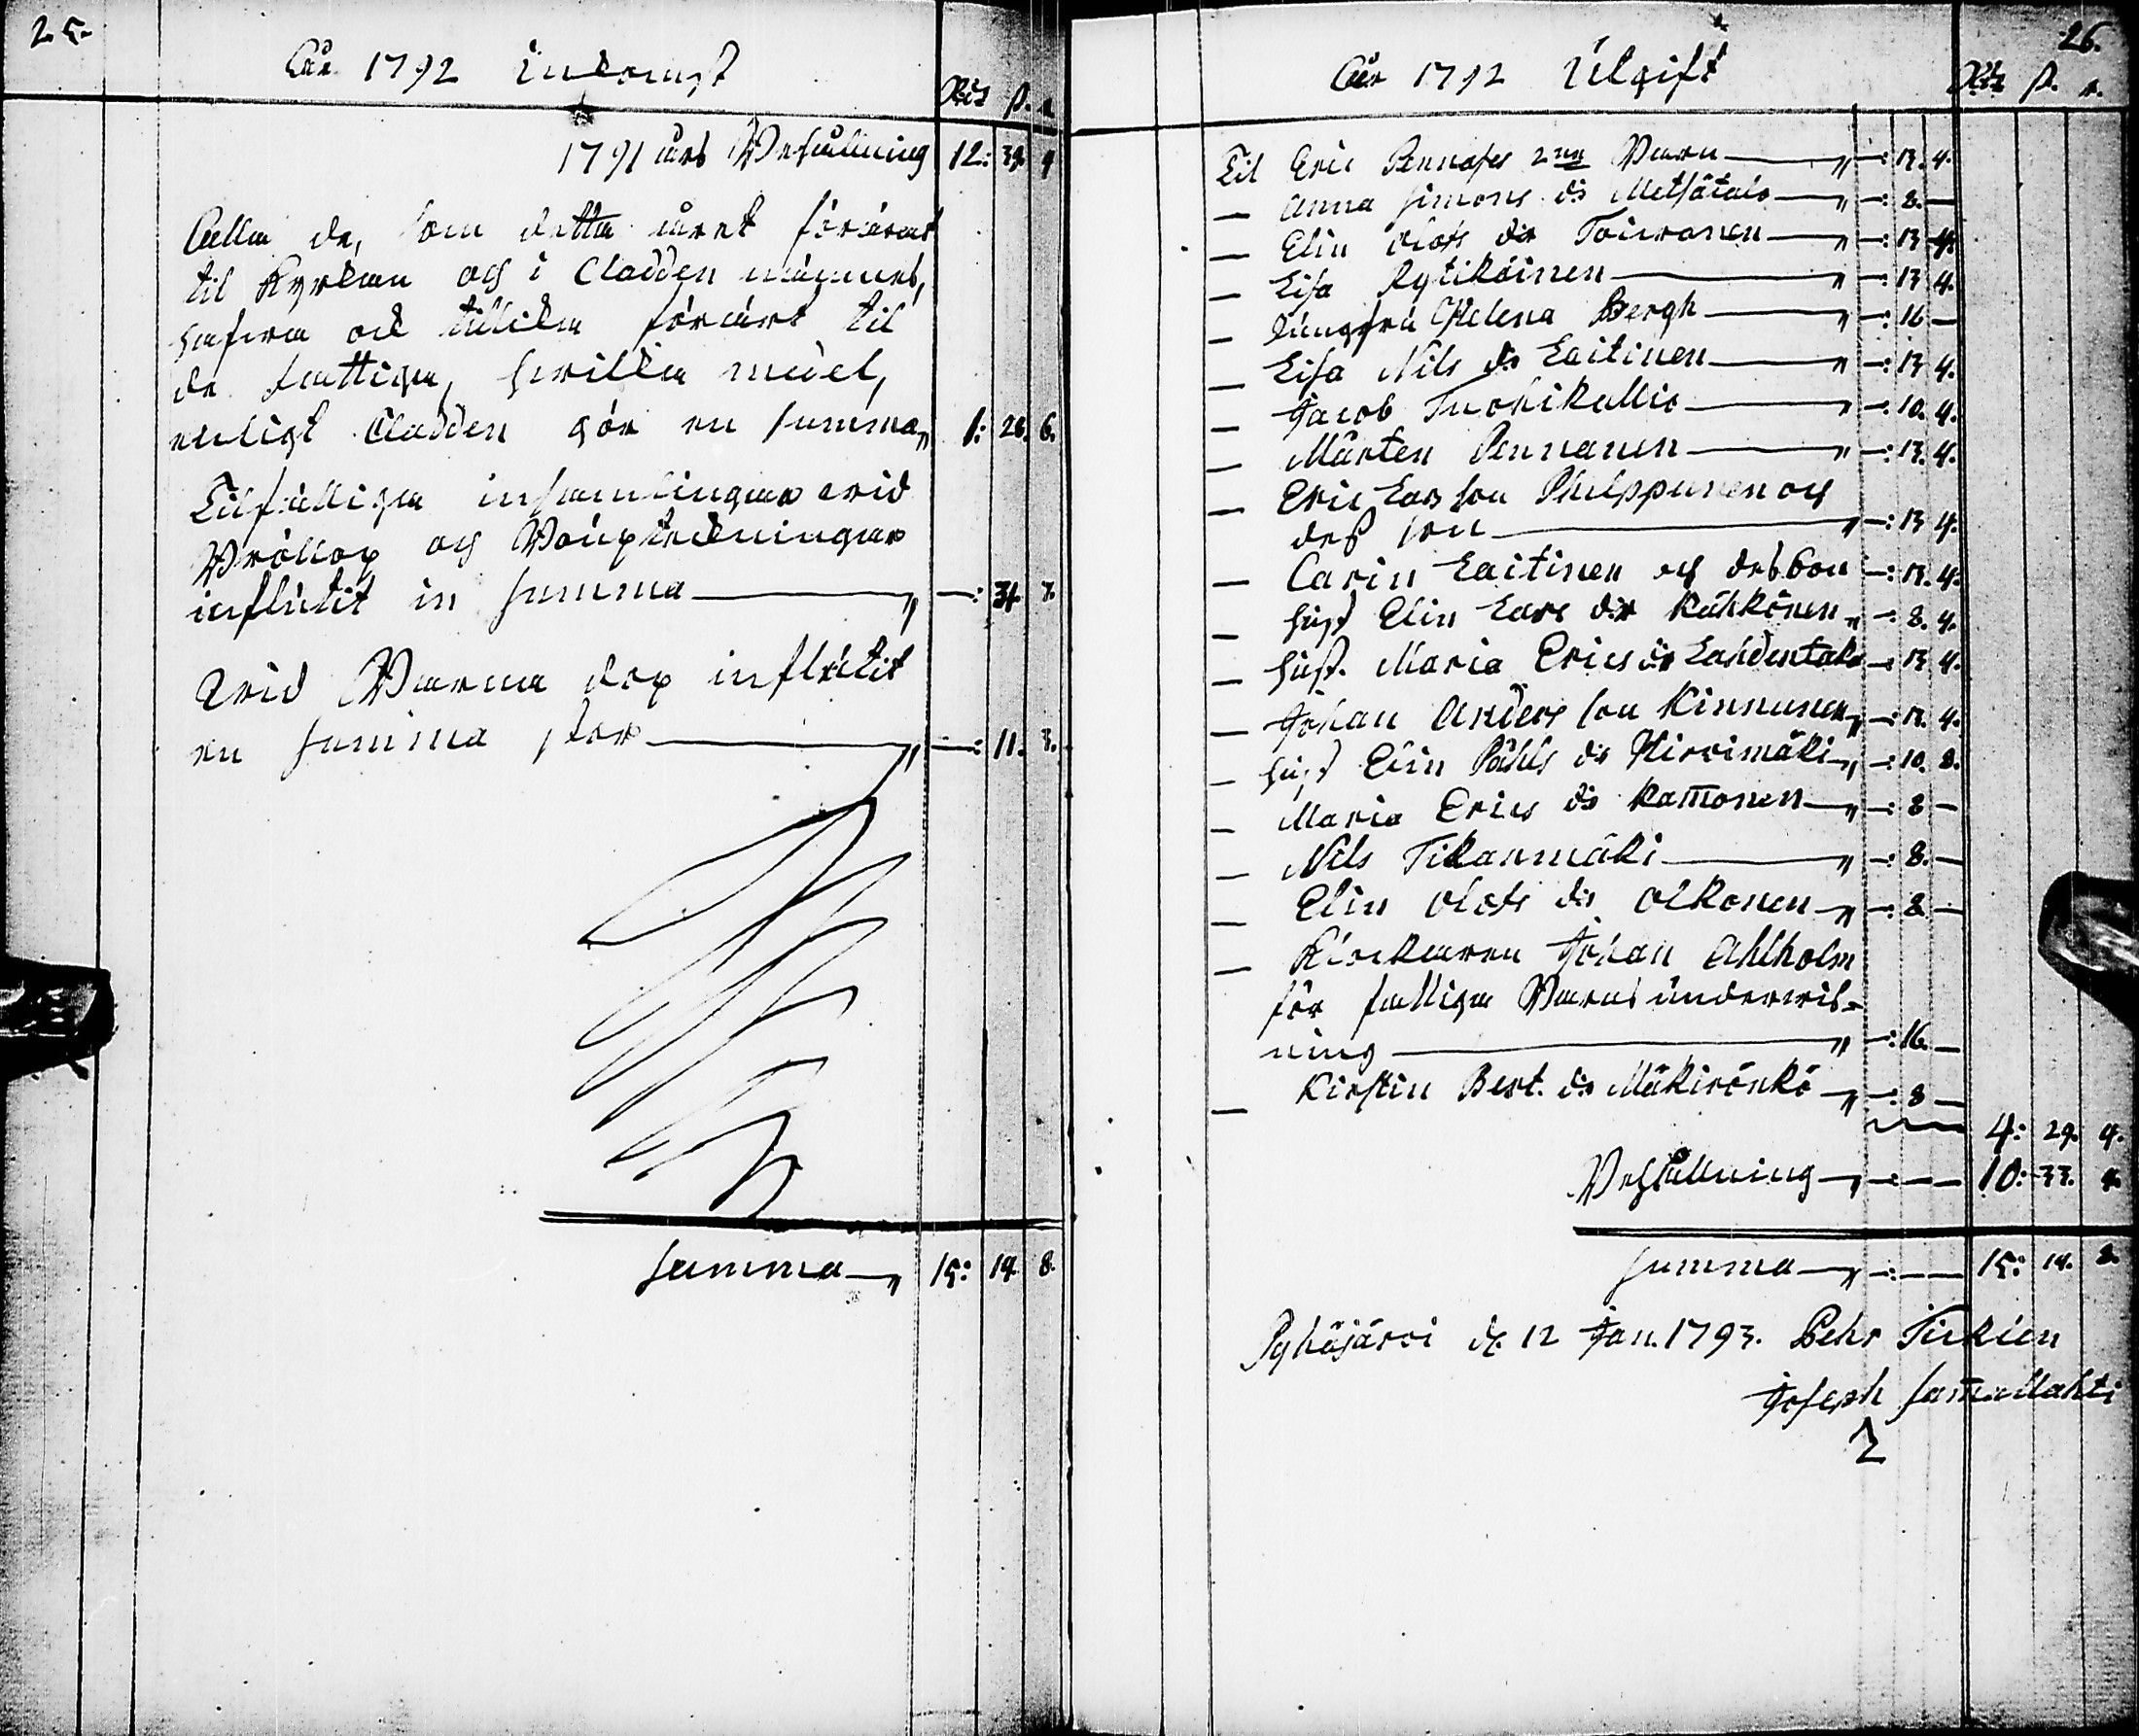 25.
Åhr 1792 Inkomst
Rdr ß. r.
1791 års Behållning 12: 39. 4
Alla de, som detta året förärat
til Kyrkan och i Cladden nämnes,
hafwa ock tillika förärt til
de fattiga, hwilka medel,
enligt Cladden gör en summa „ 1: 26. 6.
Tilfälliga insamlingar wid
Bröllop och Bouptekningar
influtit in summa „ —: 34. 7.
Wid Barna dop influtit
en summa stor „ —: 11. 3.
Summa „ 15: 14. 8.
26.
Åhr 1792 Utgift
Rdr ß. r.
Til Eric Pennases 2ne Barn „ —: 13. 4.
— Anna Simons dr Metsätalo „ —: 8. —
— Elin Olofs dr Toiwonen „ —: 13 4.
— Lisa Rytikäinen „ —: 13 4.
— Jungfru Helena Bergh „ —: 16 —
— Lisa Nils dr Laitinen „ —: 13 4.
— Jacob Tuohikallio „ —: 10. 4.
— Mårten Pennanen „ —: 13. 4.
— Eric Lars son Philppunen och
dess son „ —: 13 4.
— Carin Laitinen och dess son —: 13. 4.
— hust Elin Lars dr Kähkönen „ —: 8. 4.
— hust. Maria Erics dr Lahdentalo —: 13 4.
— Johan Anders son Kinnunen „ —: 13. 4.
— hust Elin Påhls dr Hirvimäki „ —: 10. 8.
— Maria Erics dr Kam̄onen „ —: 8 —
— Nils Tikanmäki „ —: 8. —
— Elin Olofs dr Olkonen „ —: 8 —
— Klockaren Johan Ahlholm
för fattiga Barns underwis-
ning „ —: 16. —
— Kirstin Bert. dr Mäkirönkö „ —: 8 —
4: 29. 4.
Behållning „ —: — — 10: 33. 4.
Summa „ —: — — 15: 14. 8.
Pyhäjärvi d. 12 Jan. 1793. Pehr Ticklen
Joseph Sam̄allahti